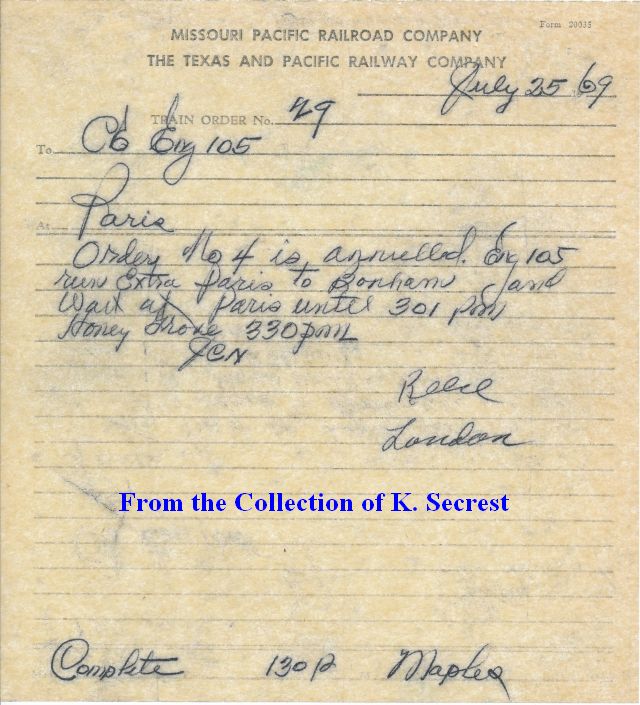 Form 20035
MISSOURI PACIFIC RAILROAD COMPANY
THE TEXAS AND PACIFIC RAILWAY COMPANY
July 25 69
TRAIN ORDER No. 29
To C&E Eng 105
At Paris
Order No 4 is annulled. Eng 105
run Extra Paris to Bonham and
Wait at Paris until 301 pm
Honey Grove 330pm
JCN
Reese
London
From the Collection of K. Secrest
Complete 130 P Maples